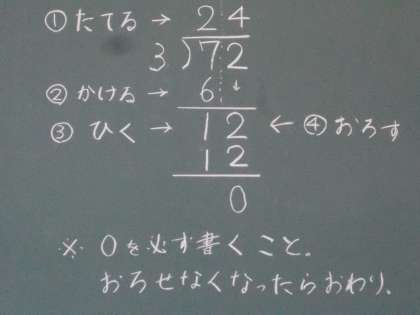 ①たてる → 24
3)72
②かける → 6↓
③ひく → 12 ← ④おろす
12
0
※ 0を必ず書くこと。
おろせなくなったらおわり。